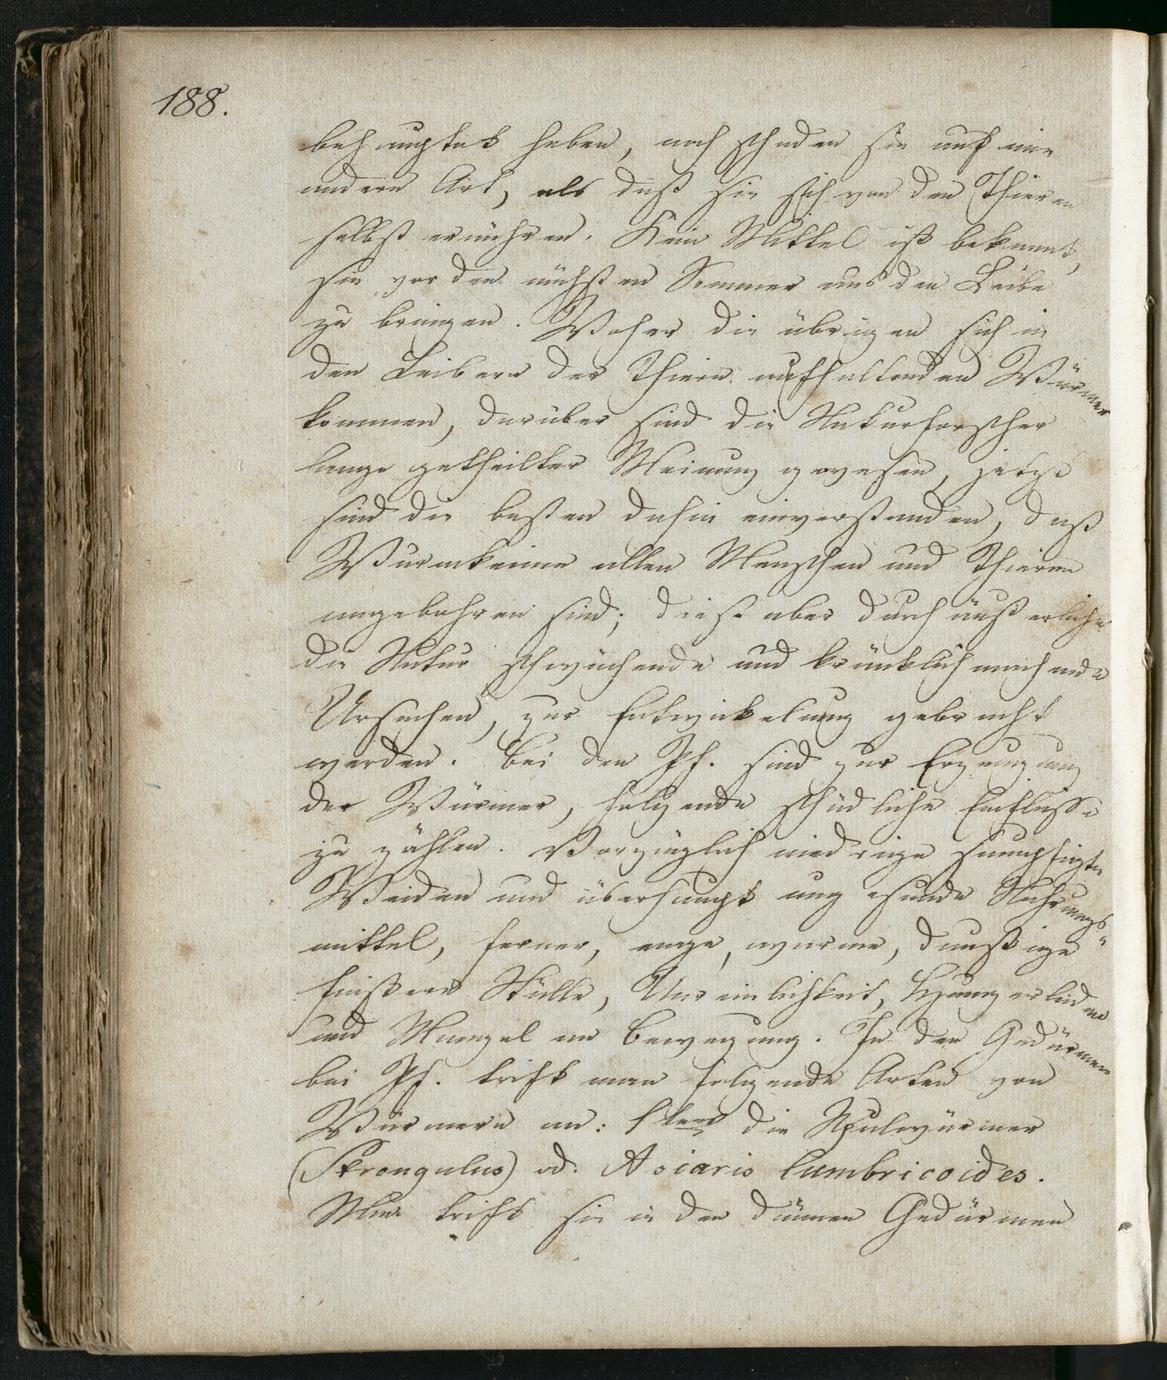 188.
behauptet haben, noch schaden sie auf eine
andere Art, als daß sie sich von den Thieren
selbst ernähren. Kein Mittel ist bekannt,
sie vor den nächsten Sommer aus den Leibe
zu bringen. Woher die übrigen sich in
den Leibern der Thiere aufhaltenden Würmer
kommen, darüber sind die Naturforscher
lange getheilter Meinung gewesen, jetzt
sind die besten dahin einverstanden, daß
Wurmkeime allen Menschen und Thieren
angebohren sind; diese aber durch äußerliche
die Natur schwächende und kränklich machende
Ursachen, zur Entwickelung gebracht
werden. Bei den Pf. sind zur Erzeugung
der Würmer, folgende schädliche Einflüsse
zu zählen. Vorzüglich niedrige sumpfigte
Weiden und überhaupt ungesunde Nahrungs-
mittel, ferner, enge, warme, dunstige
finstere Ställe, Unreinlichkeit, Hungerleiden
und Mangel an Bewegung. In den Gedärmen
bei Pf. trift man folgende Arten von
Würmern an: 1stens die Spulwürmer
(Strongulus) od. Asiaris lumbricoides.
Man trift sie in den dünnen Gedärmen